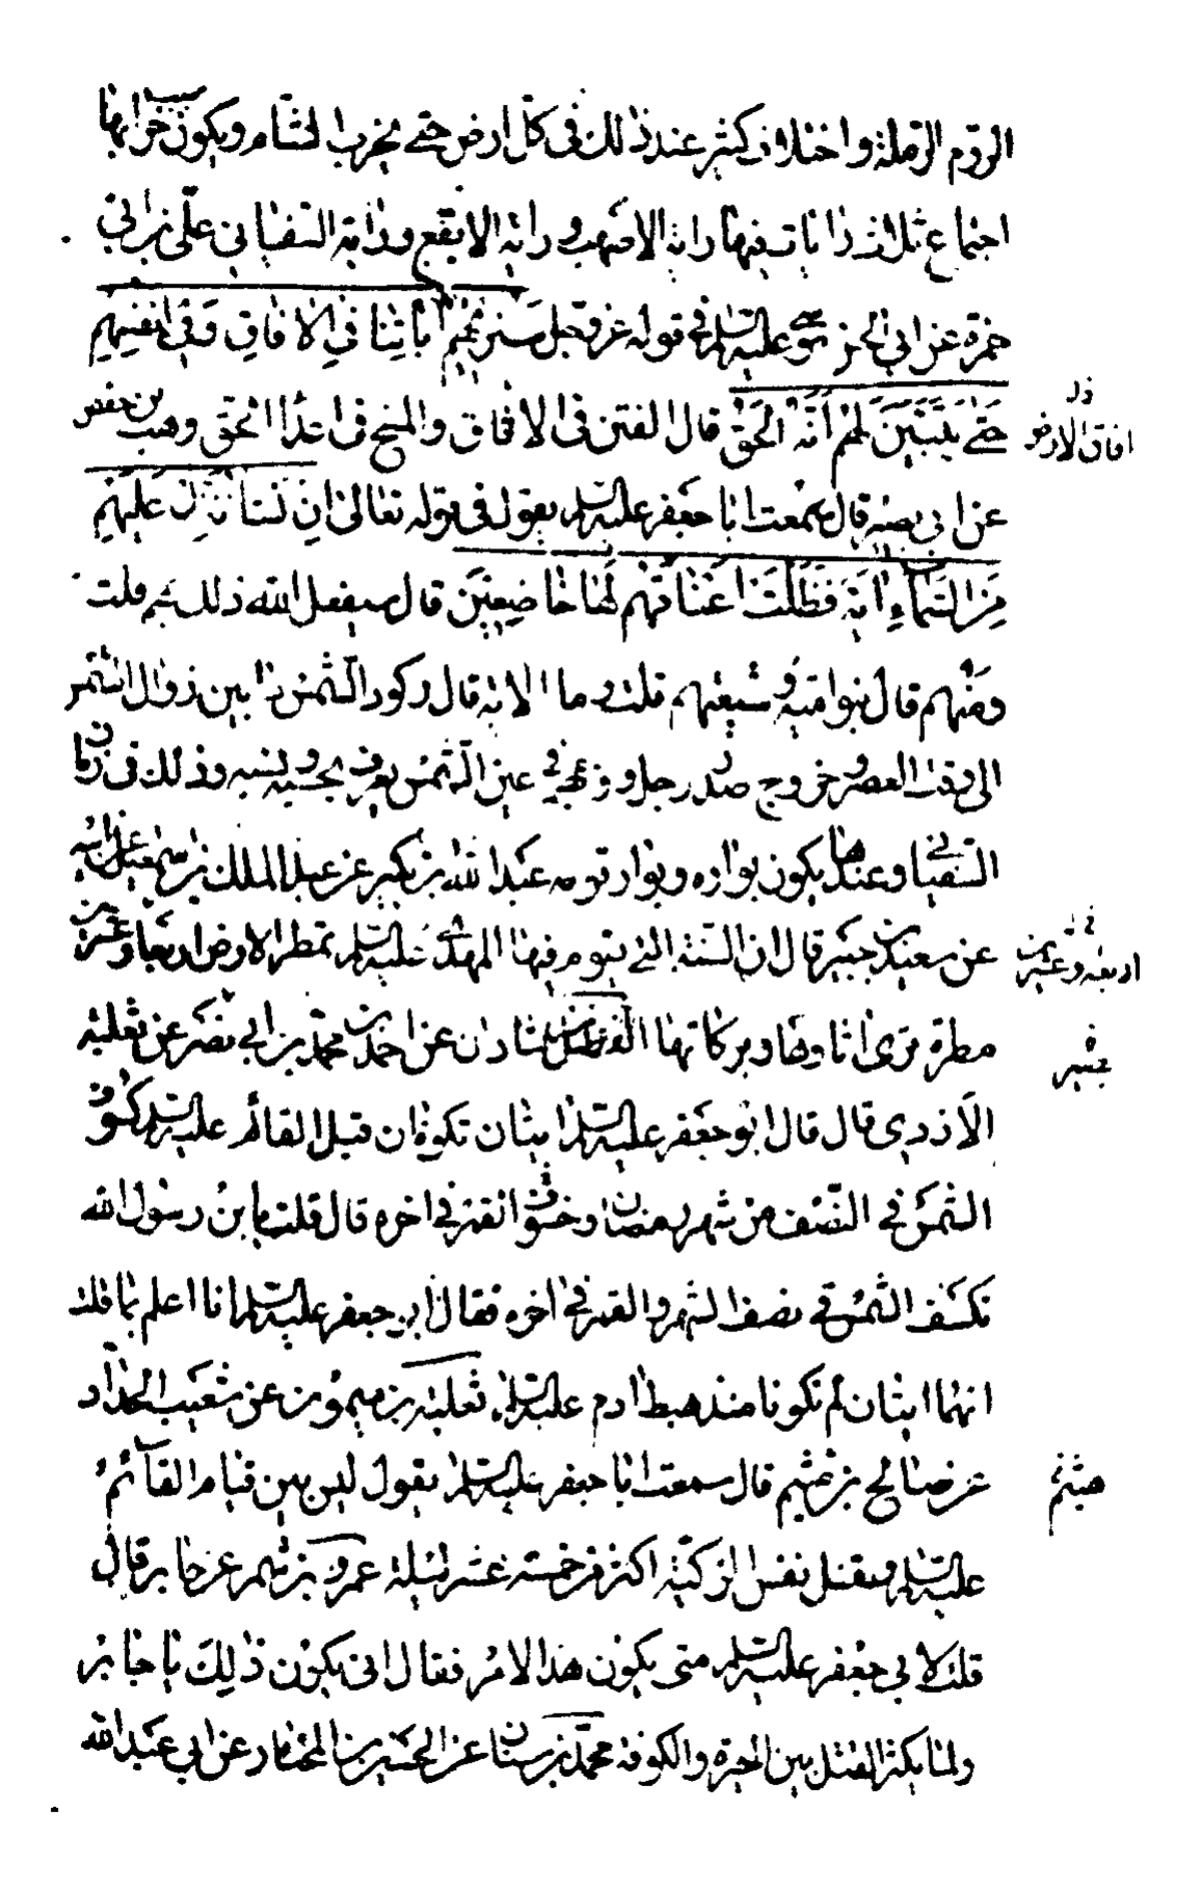 الروم الرملة واختلاف كثير عند ذلك فى كل ارض حتى يخرب الشام ويكون سبب خرابها
اجتماع ثلاث رايات فيها راية الاصهب وراية الابقع وراية السفيانى على بن ابى
حمزة عن ابى الحسن موسى عليه السلم فى قوله عز وجل سَنُريهم اياتِنا فىِ الافاقِ وَفى انفسِهِم
حَتى يَتَبَيَّنَ لَهُمْ اَنَّهُ الحَقُّ قال الفتن فى الافاق والمسخ فى اعداء الحق وهيب بن حفص
افاق الارض ذل
عن ابى بصير قال سمعت ابا جعفر عليه السلم يقول فى قوله تعالى اِن نَشأ نُنَزِل عَليهم
مِنَ السَّماءِ ايَة فَظَلَّت اَعناقُهُم لَها خاضِعِينَ قال سيفعل الله ذلك بهم قلت
ومن هم قال بنو امية وشيعتهم قلت وما الاية قال ركود الشمس ما بين زوال الشمس
الى وقت العصر وخروج صدر رجل ووجه فى عين الشمس يعرف بحسبه ونسبه وذلك فى زمان
السفيانى وعندها يكون بواره وبوار قومه عبد الله بن بكير عن عبد الملك بن اسمعيل عن ابيه
عن سعيد بن جبير قال ان السنة التى يقوم فيها المهدى عليه السلم تمطر الارض اربعا وعشرين
اربعة وعشرين
مطرة ترى اثارها وبركاتها الفضل بن شاذان عن احمد بن محمد بن ابى نصر عن ثعلبة
الازدى قال قال ابو جعفر عليه السلم ايتان تكونان قبل القائم عليه السلم كسوف
الشمس فى النصف من شهر رمضان وخسوف القمر فى اخره قال قلت يا بن رسول الله
تكسف الشمس فى نصف الشهر والقمر فى اخره فقال ابو جعفر عليه السلم انا اعلم بما قلت
انهما ايتان لم تكونا منذ هبط ادم عليه السلم ثعلبة بن ميمون عن شعيب الحداد
عن صالح بن ميثم قال سمعت ابا جعفر عليه السلم يقول ليس بين قيام القائم
عليه السلم وقتل نفس الزكية اكثر من خمسة عشر ليلة عمرو بن شمر عن جابر قال
قلت لابى جعفر عليه السلم متى يكون هذا الامر فقال انى يكون ذلك يا جابر
ولما يكثر القتل بين الحيرة والكوفة محمد بن سنان عن الحسين بن المختار عن ابى عبد الله